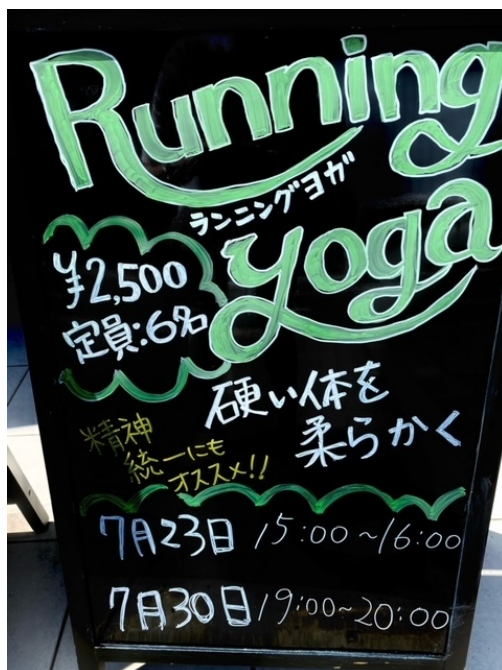 Running
ランニングヨガ
yoga
¥2,500
定員:6名
硬い体を
柔らかく
精神
統一にも
オススメ!!
7月23日 15:00~16:00
7月30日 19:00~20:00